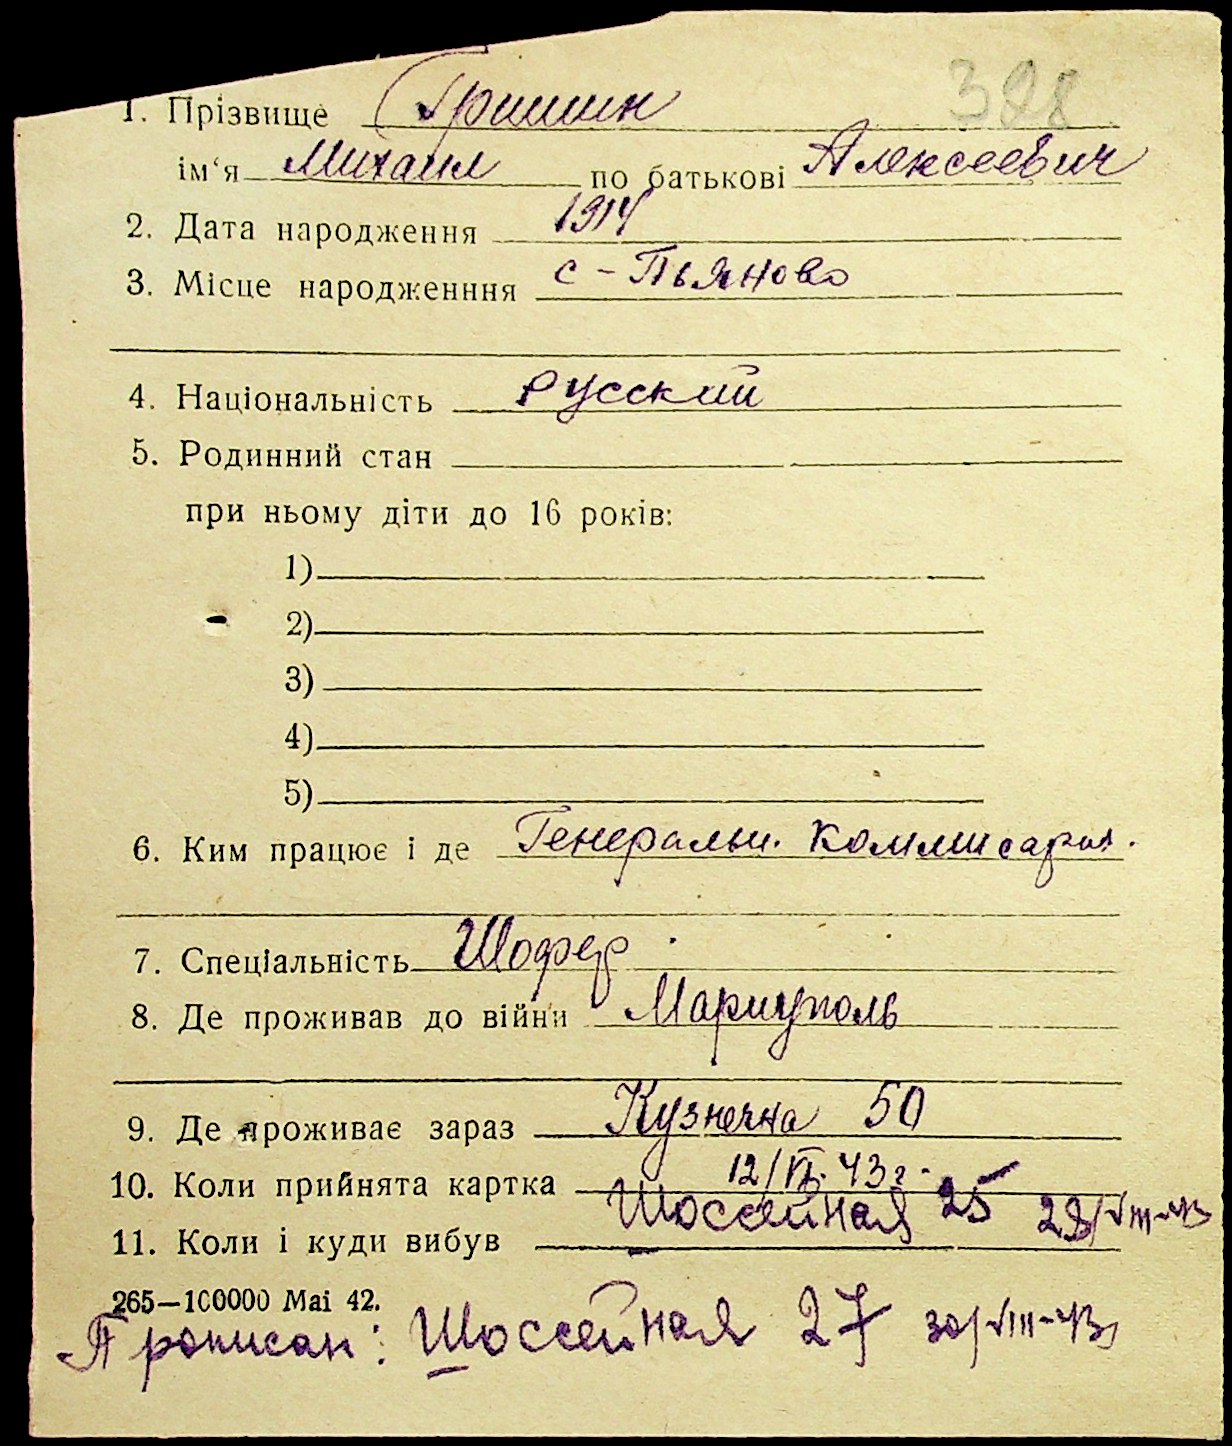 1. Прізвище Гришин 328
ім'я Михаил по батькові Алексеевич
2. Дата народження 1914
3. Місце народженння с-Пьяново
4. Національність русский
5. Родинний стан
при ньому діти до 16 років:
1)
2)
3)
4)
5)
6. Ким працює і де Генеральн. коммисариат.
7. Спеціальність Шофер
8. Де проживав до війни Мариуполь
9. Де проживає зараз Кузнечна 50
10. Коли прийнята картка 12/VI. 43 г.
Шоссейная 25 28/VIII-43
11. Коли і куди вибув
265—100000 Mai 42.
Прописан: Шоссейная 27 30/VIII-43